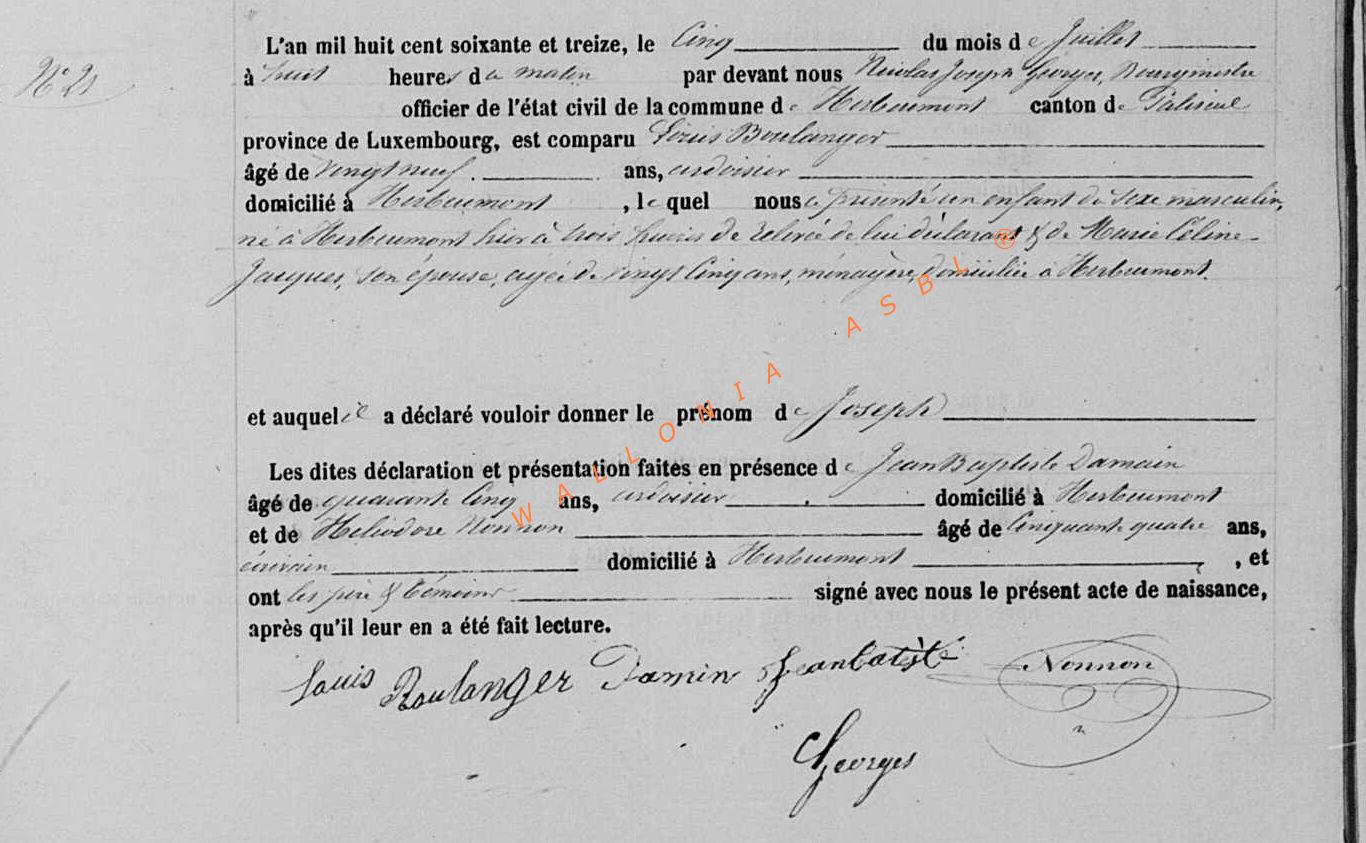 N° 21
L'an mil huit cent soixante et treize, le Cinq du mois de Juillet
à huit heures du matin par devant nous Nicolas Joseph Georges, Bourgmestre
officier de l'état civil de la commune de Herbeumont canton de Paliseul
province de Luxembourg, est comparu Louis Boulanger
âgé de vingt neuf ans, ardoisier
domicilié à Herbeumont , le quel nous a présenté un enfant du sexe masculin,
né à Herbeumont hier à trois heures de relevée de lui déclarant & de Marie Céline
Jacques, son épouse, agée de vingt Cinq ans, ménagère, domiciliée à Herbeumont.
et auquel il a déclaré vouloir donner le prénom de Joseph
Les dites déclaration et présentation faites en présence de Jean Baptiste Damain
âgé de quarante Cinq ans, ardoisier domicilié à Herbeumont
et de Héliodore Nonnon âgé de Cinquante quatre ans,
écrivain domicilié à Herbeumont , et
ont les père & témoins signé avec nous le présent acte de naissance,
après qu'il leur en a été fait lecture.
Louis Boulanger Damin Jeanbatiste Nonnon
Georges
WALLONIA ASBL ®